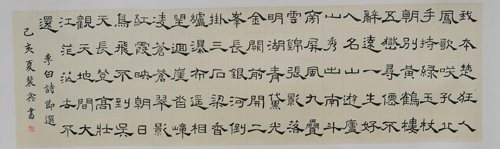 我本楚狂人
鳳歌笑孔丘
手持綠玉杖
朝別黃鶴樓
五嶽尋仙不
辭遠一生好
入名山遊廬
山秀出南斗
傍屏風九疊
雲錦張影落
明湖青黛光
金闕前開二
峰長銀河倒
掛三石梁香
爐瀑布遙相
望迴崖沓嶂
凌蒼蒼翠影
紅霞映朝日
鳥飛不到吳
天長登高壯
觀天地間大
江茫茫去不
還
李白詩節選
己亥夏裴書